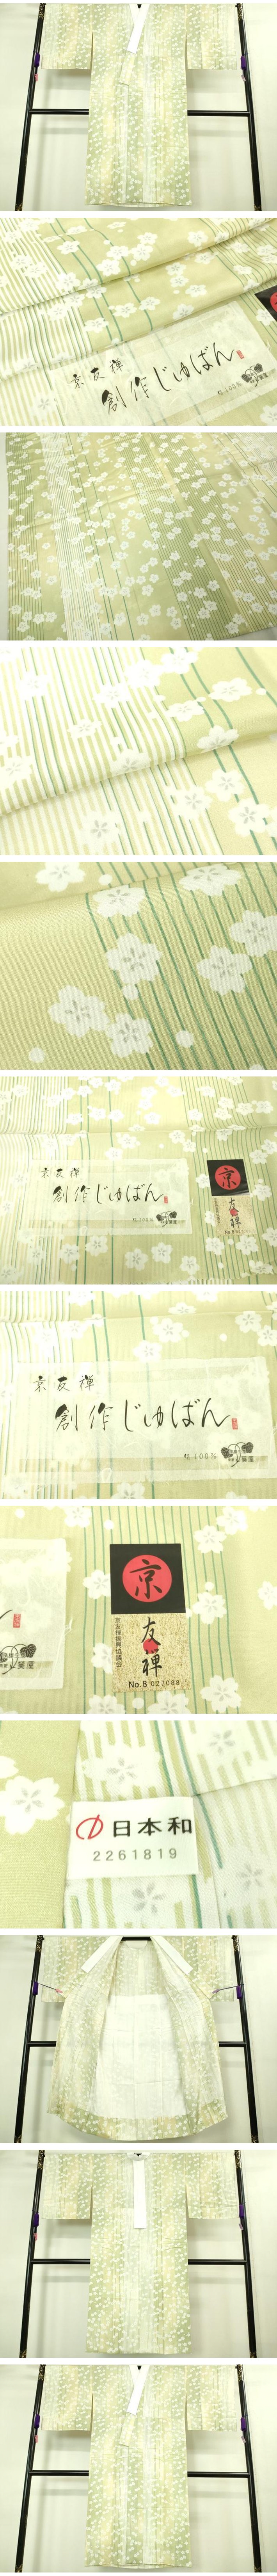 京友禅
創作じゅばん
絹100%
京友禅
創作じゅばん
絹100%
京
友禅
京友禅
創作じゅばん
絹100%
京
友禅
京友禅振興協議会
No.8 027088
日本和
2261819